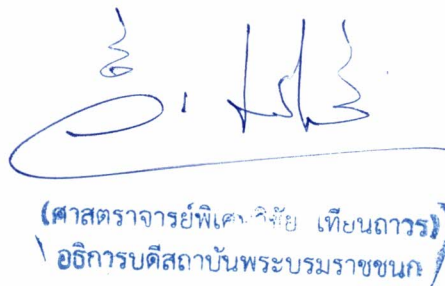 (ศาสตราจารย์พิเศษวิชัย เทียนถาวร)
อธิการบดีสถาบันพระบรมราชชนก